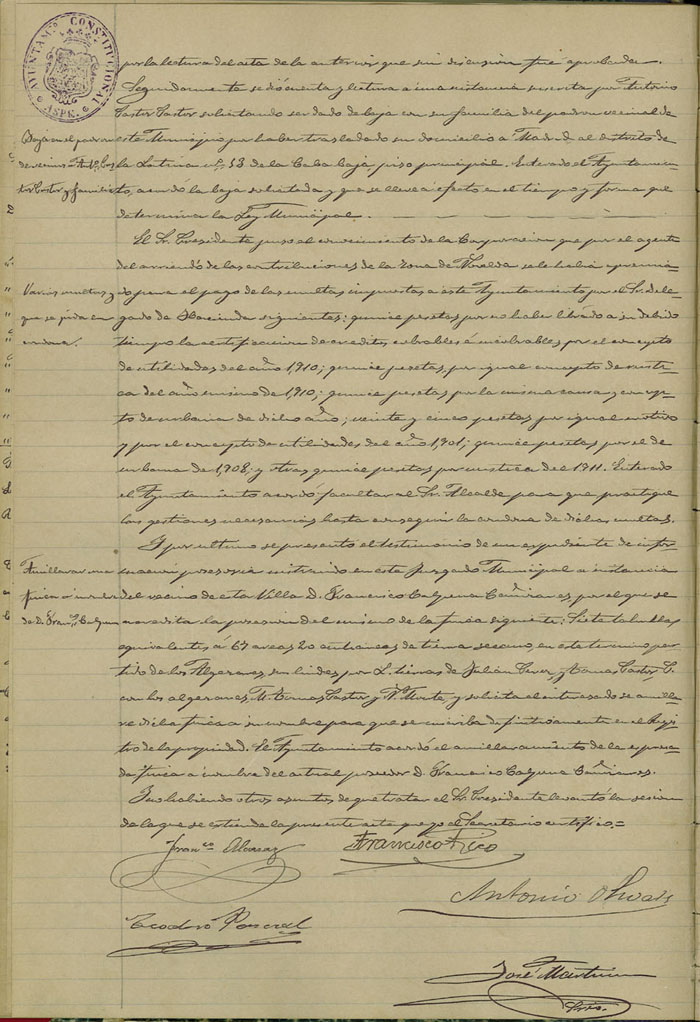 AYUNTAM.º CONSTITUCIONAL
ASPE.
por la lectura del acta de la anterior que sin discusion fué aprobada.
Seguidamente se dió cuenta y lectura a una instancia suscrita por Antonio
Pastor Pastor solicitando ser dado de baja con su familia del padron vecinal de
Baja en el padron
de vecinos Antº Pas
tor Pastor y familia
este Municipio por haber trasladado su domicilio a Madrid al distrito de
la Latina nº 53 de la Caba baja, piso principal. Enterado el Ayuntamien
to, acordó la baja solicitada y que se lleve á efecto en el tiempo y forma que
determina la Ley Municipal.
El Sr. Presidente puso al conocimiento de la Corporacion que por el agente
del arriendo de las contribuciones de la zona de Novelda se le habia apremia
Varias multas y
que se pida con
dona.
do para el pago de las multas impuestas a este Ayuntamiento por el Sr. Dele
gado de Hacienda siguientes: quince pesetas por no haber librado a su debido
tiempo la certificacion de creditos cobrables é incobrables por el concepto
de utilidades del año 1,910; quince pesetas, por igual concepto de rusti
ca del año mismo de 1,910; quince pesetas por la misma causa y concep
to de urbana de dicho año; veinte y cinco pesetas por igual motivo
y por el concepto de utilidades del año 1,901; quince pesetas por el de
urbana de 1,908; y otras quince pesetas por rustica del 1911. Enterado
el Ayuntamiento acordó facultar al Sr. Alcalde para que practique
las gestiones necesarias hasta conseguir la condona de dichas multas.
Y por ultimo se presentó el testimonio de un expediente de infor
Amillarar una
finca a nombre
de D. Franco Calpena
macion posesoria instruido en este Juzgado Municipal a instancia
del vecino de esta Villa D. Francisco Calpena, por el que se
acredita la posesion del mismo de la finca siguiente: Siete tahullas
equivalentes á 67 areas 20 centiareas de tierra secano, en este termino par
tido de los Algezares, sus lindes por L. tierras de Julian y Tomas Pastor, P.
con los algezares, M. Tomas Pastor y N. Monte, y solicita el interesado se amilla
re dicha finca a su nombre para que se inscriba definitivamente en el Regis
tro de la propiedad. El Ayuntamiento acordó el amillaramiento de la expresa
da finca a nombre del actual poseedor D. Francisco Calpena.
Y no habiendo otros asuntos de que tratar el Sr. Presidente levantó la sesion
de la que se extiende la presente acta que yo el Secretario certifico.=
Franco Alcaraz
Francisco Rico
Antonio Olivares
Teodoro Pascual
José Martinez
Srio.